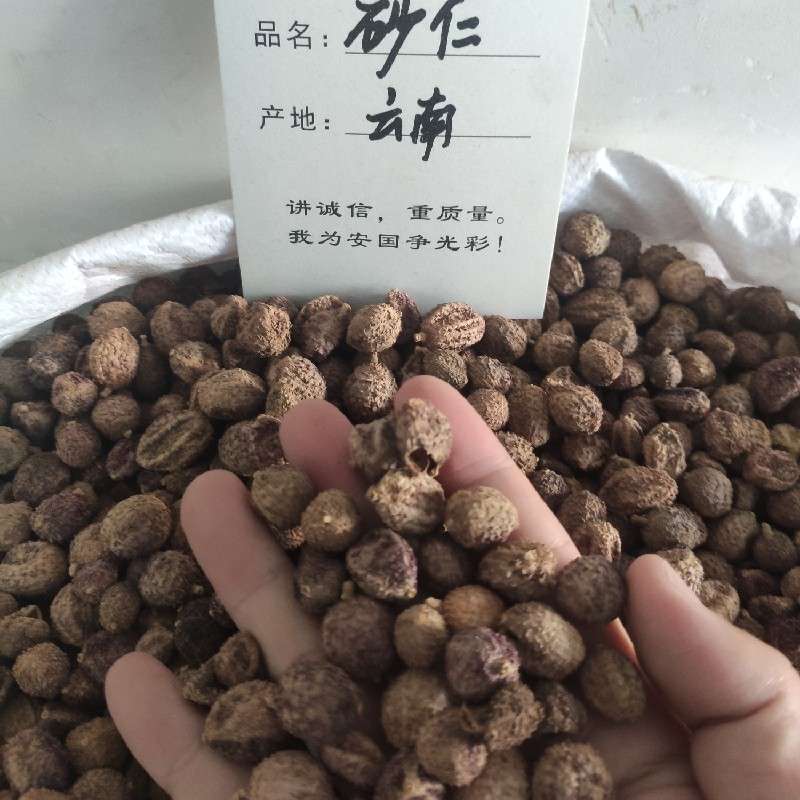 品名：砂仁
产地：云南
讲诚信，重质量。
我为安国争光彩！